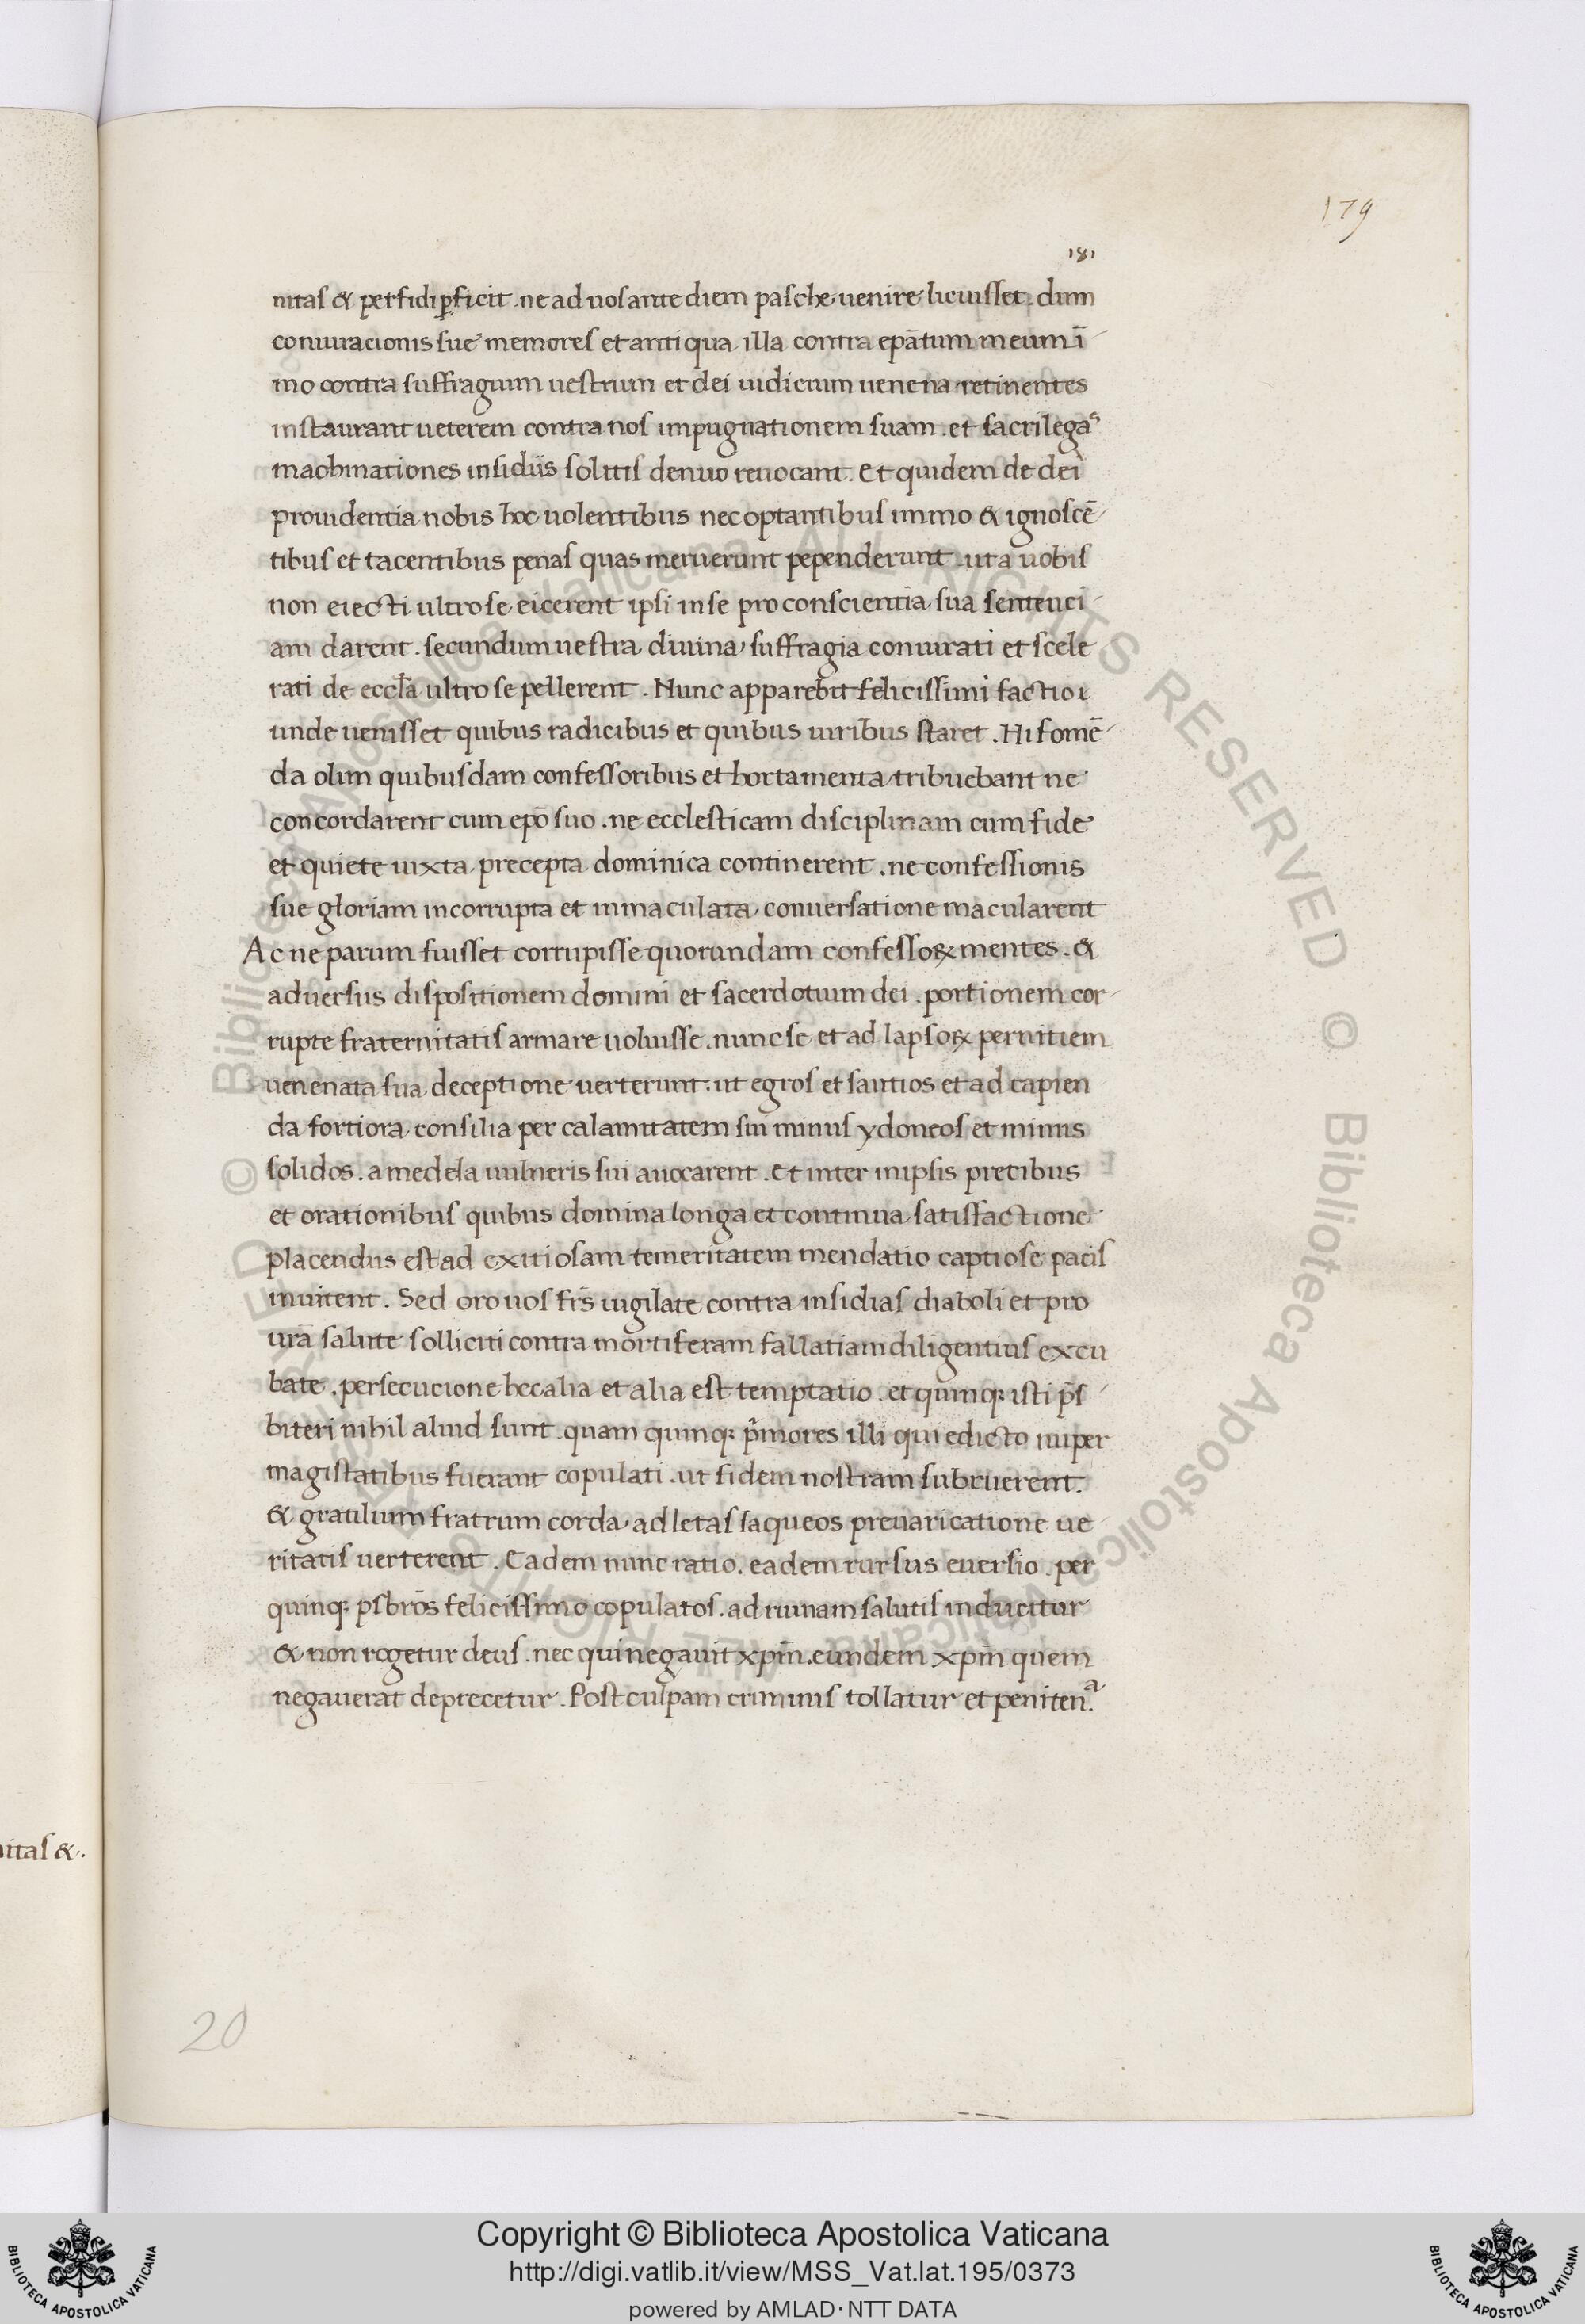 179
181
nitas & perfidi p̱ficit . ne ad uos ante diem pasche uenire licuisset . dum
coniuracionis sue memores et antiqua illa contra ep̄atum meum ī
mo contra suffragium uestrum et dei iudicium uenena retinentes
instaurant ueterem contra nos impugnationem suam . et sacrilegas
machinationes insidiis solitis denuo reuocant . Et quidem de dei
prouidentia nobis hoc uolentibus nec optantibus immo & ignoscē
tibus et tacentibus penas quas meruerunt pependerunt . ut a uobis
non eiecti ultro se eicerent ipsi in se pro conscientia sua sentenci
am darent . secundum uestra diuina suffragia coniurati et scele
rati de eccl̄a ultro se pellerent . Nunc apparebit felicissimi factio i
unde uenisset quibus radicibus et quibus uiribus staret . Hi fomē
da olim quibusdam confessoribus et hortamenta tribuebant ne
concordarent cum ep̄o suo . ne ecclesticam disciplinam cum fide
et quiete iuxta precepta dominica continerent . ne confessionis
sue gloriam incorrupta et inmaculata conuersatione macularent
Ac ne parum fuisset corrupisse quorundam confessoꝝ mentes . &
aduersus dispositionem domini et sacerdotium dei . portionem cor
rupte fraternitatis armare uoluisse . nunc se et ad lapsoꝝ pernitiem
uenenata sua deceptione uerterunt . ut egros et sautios et ad capien
da fortiora consilia per calamitatem sui minus ydoneos et minus
solidos . a medela uulneris sui auocarent . Et inter inipsis precibus
et orationibus quibus domina longa et continua satisfactione
placendus est ad exitiosam temeritatem mendatio captiose pacis
inuitent . Sed oro uos fr̄s uigilate contra insidias diaboli et pro
ur̄a salute solliciti contra mortiferam fallatiam diligentius excu
bate . persecucione hec alia et alia est temptatio . et quinqꝫ isti p̄s
biteri nihil aliud sunt . quam quinqꝫ pⁱmores illi qui edicto nuper
magistatibus fuerant copulati . ut fidem nostram subruerent .
& gratilium fratrum corda ad letas laqueos preuaricatione ue
ritatis uerterent . Eadem nunc ratio . eadem rursus euersio . per
quinqꝫ psbr̄os felicissimo copulatos . ad ruinam salutis inducitur
& non rogetur deus . nec qui negauit xp̄m . eundem xp̄m quem
negauerat deprecetur . Post culpam criminis tollatur et penitenᵃ.
nitas & .
20
© Biblioteca Apostolica Vaticana ALL RIGHTS RESERVED © Biblioteca Apostolica Vaticana ALL RIGHTS RESERVED
Copyright © Biblioteca Apostolica Vaticana
http://digi.vatlib.it/view/MSS_Vat.lat.195/0373
powered by AMLAD·NTT DATA
BIBLIOTECA APOSTOLICA VATICANA
BIBLIOTECA APOSTOLICA VATICANA